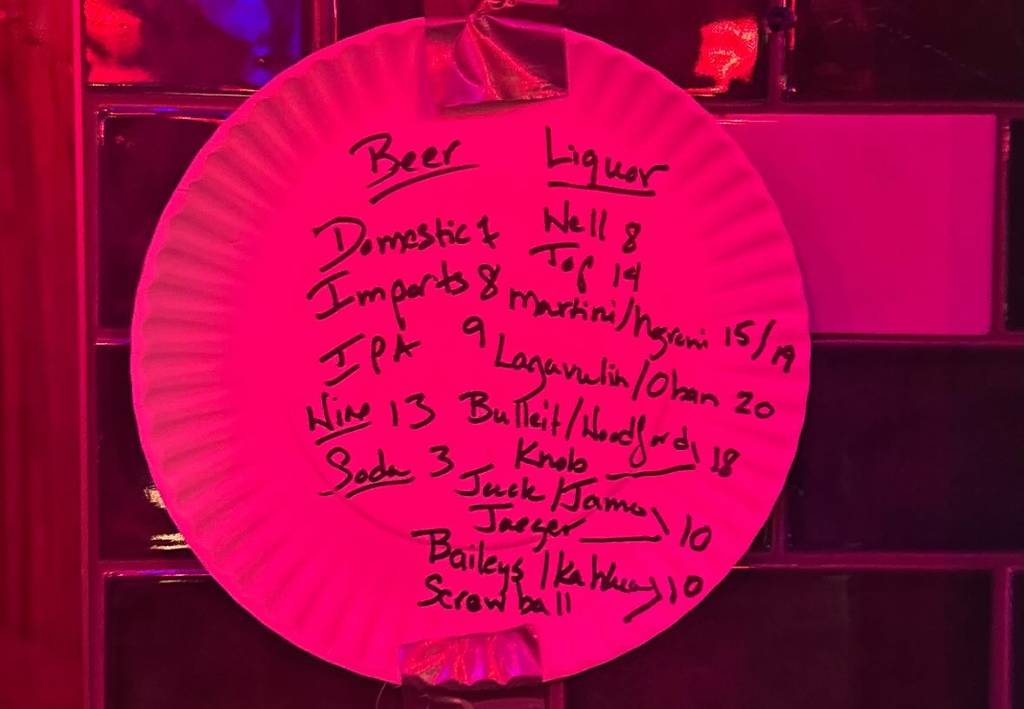 Beer
Domestic 7
Imports 8
IPA 9
Wine 13
Soda 3
Liquor
Well 8
Top 14
Martini/Negroni 15/19
Lagavulin/Oban 20
Bulleit/Woodford
Knob 18
Jack/Jamo
Jaeger 10
Baileys/Kahlua
Screwball 10